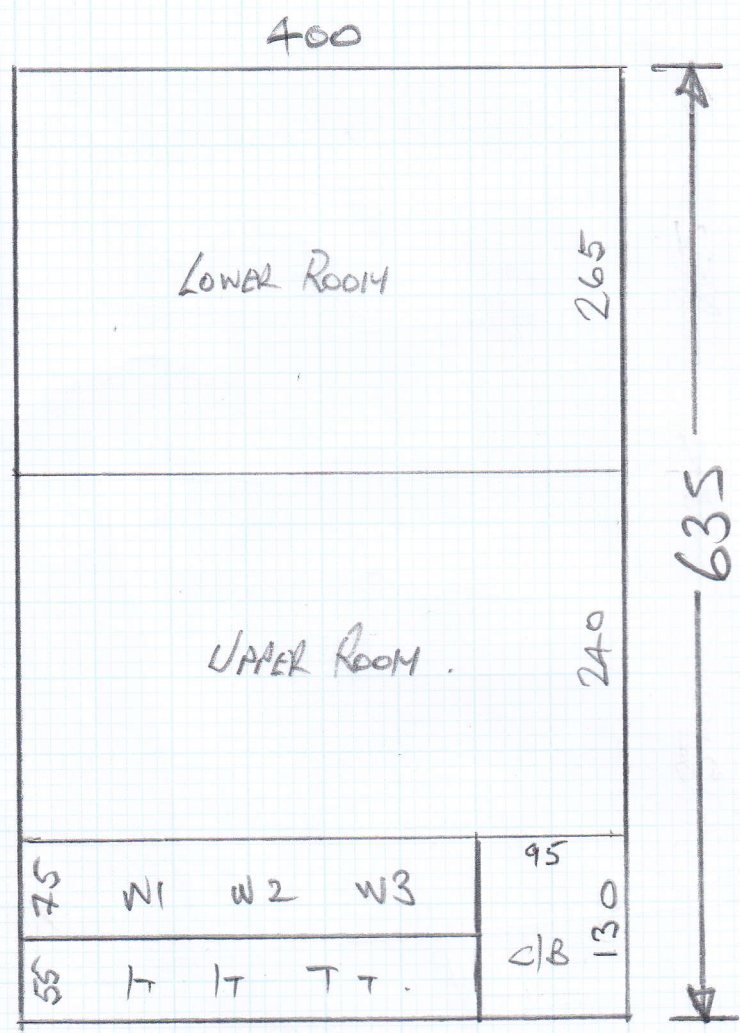 400
LOWER ROOM
265
635
UPPER ROOM.
240
75 W1 W2 W3
95
C/B 130
55 T T T T.